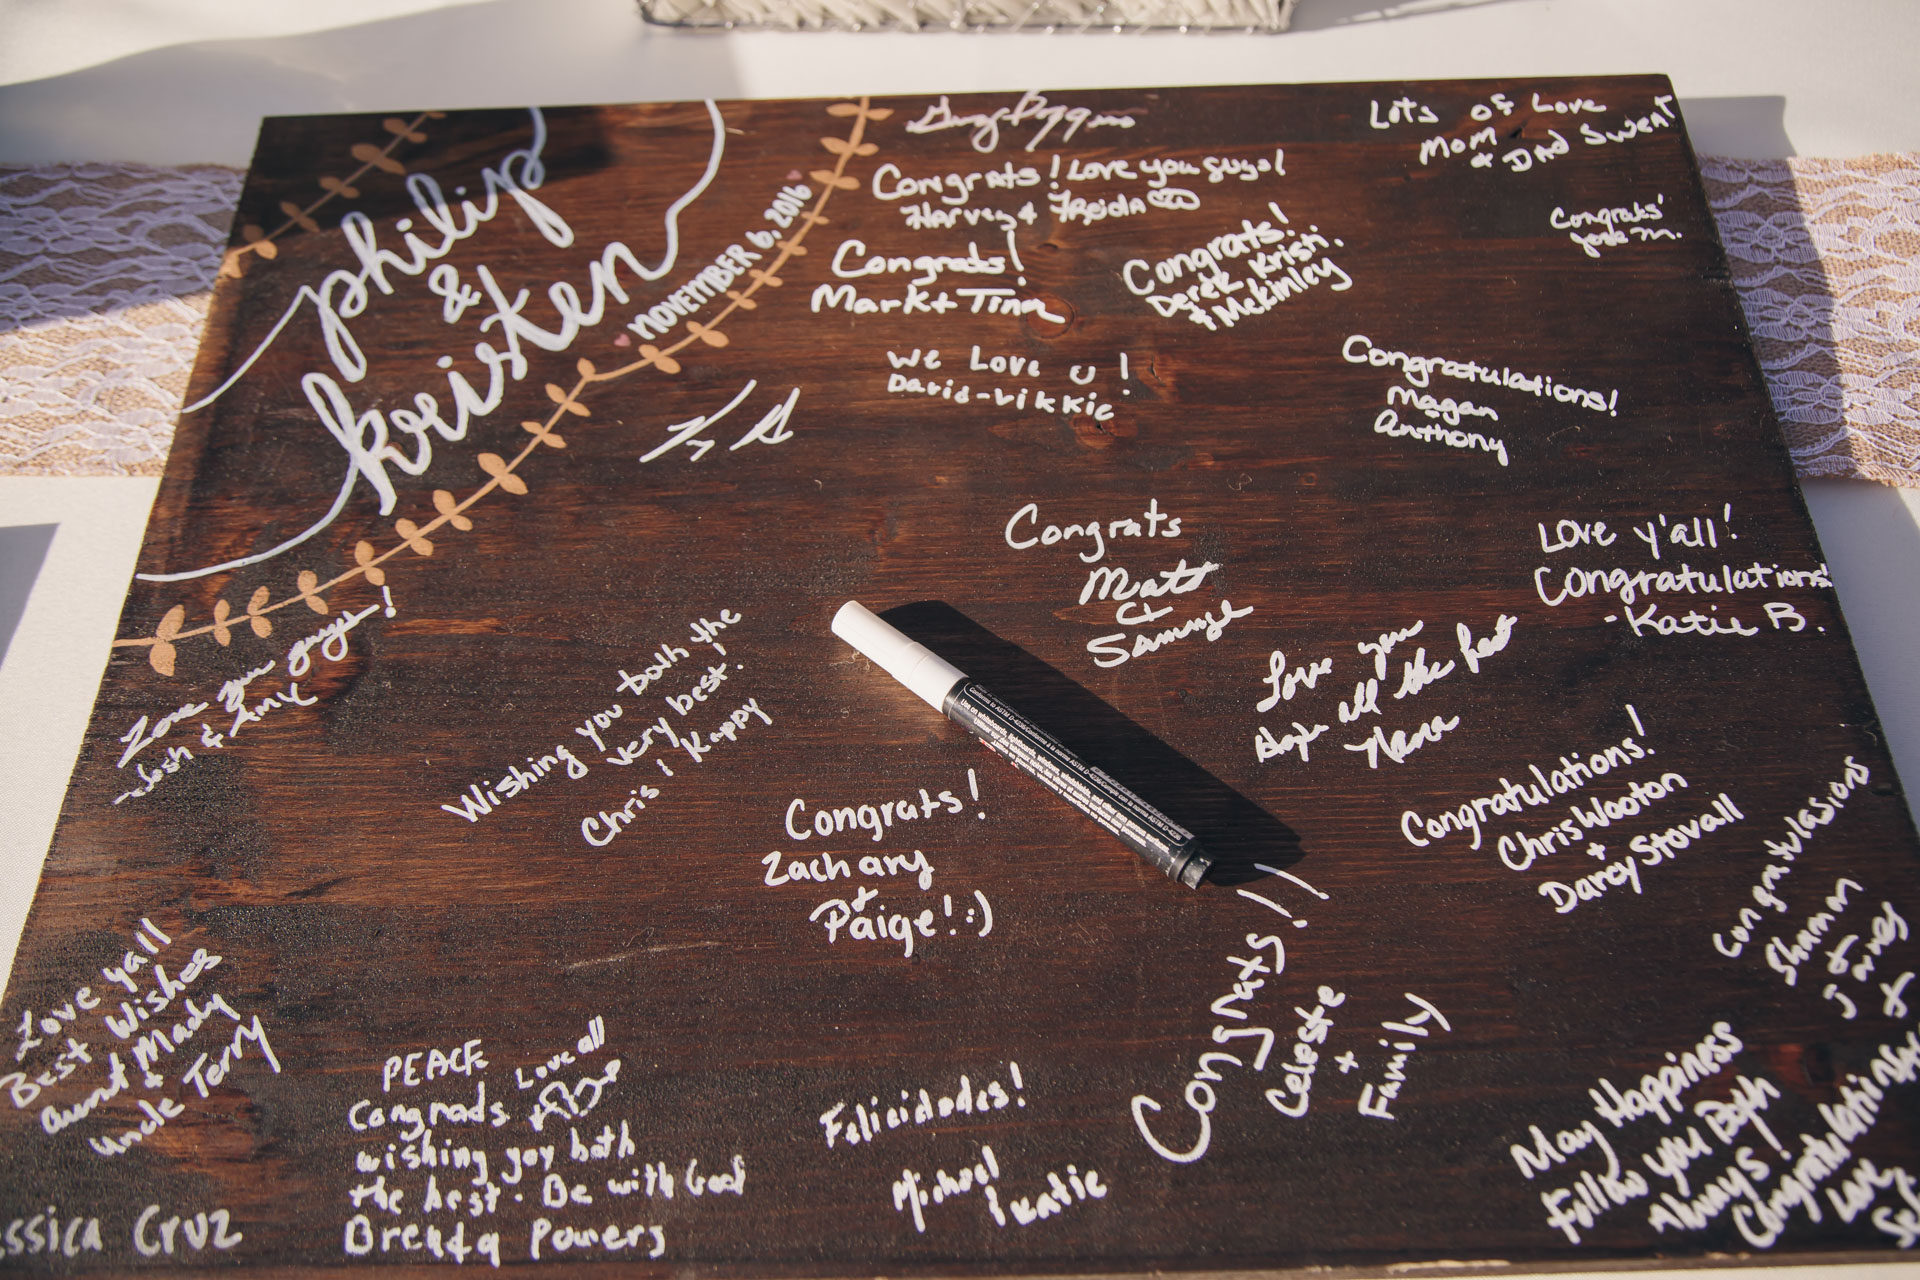 philip
&
kristen
NOVEMBER 6, 2016
Lots of Love
Mom
& Dad Swent
Congrats! Love you guys!
Harvey & Freida
Congrats!
Mark + Tina
Congrats!
Derek, Kristi,
+ Mckinley
Congrats!
We Love U!
David-Vikkie
Congratulations!
Magan
&
Anthony
Congrats
Matt
&
Love y'all!
Congratulations!
-Katie B.
Love you guys!
-Josh &
Wishing you both the
very best!
Chris & Kappy
Love you
Hope all the best
Nana
Congrats!
Zachary
+
Paige! :)
Congratulations!
Chris Wooton
+
Darcy Stovall
Congratulations
Shannon
&
James
&
Love yall
Best Wishes
Aunt Mady
+
Uncle Terry
PEACE
Love all
Congrads
wishing you both
the best. Be with God
Powers
ssica Cruz
Felicidades!
Michael
& Katie
Congrats!!
Celeste
+
Family
May Happiness
Follow you Both
Always!
Congratulations
Love
Use on whiteboards, lightboards, windows, windshields, and other non porous surfaces.